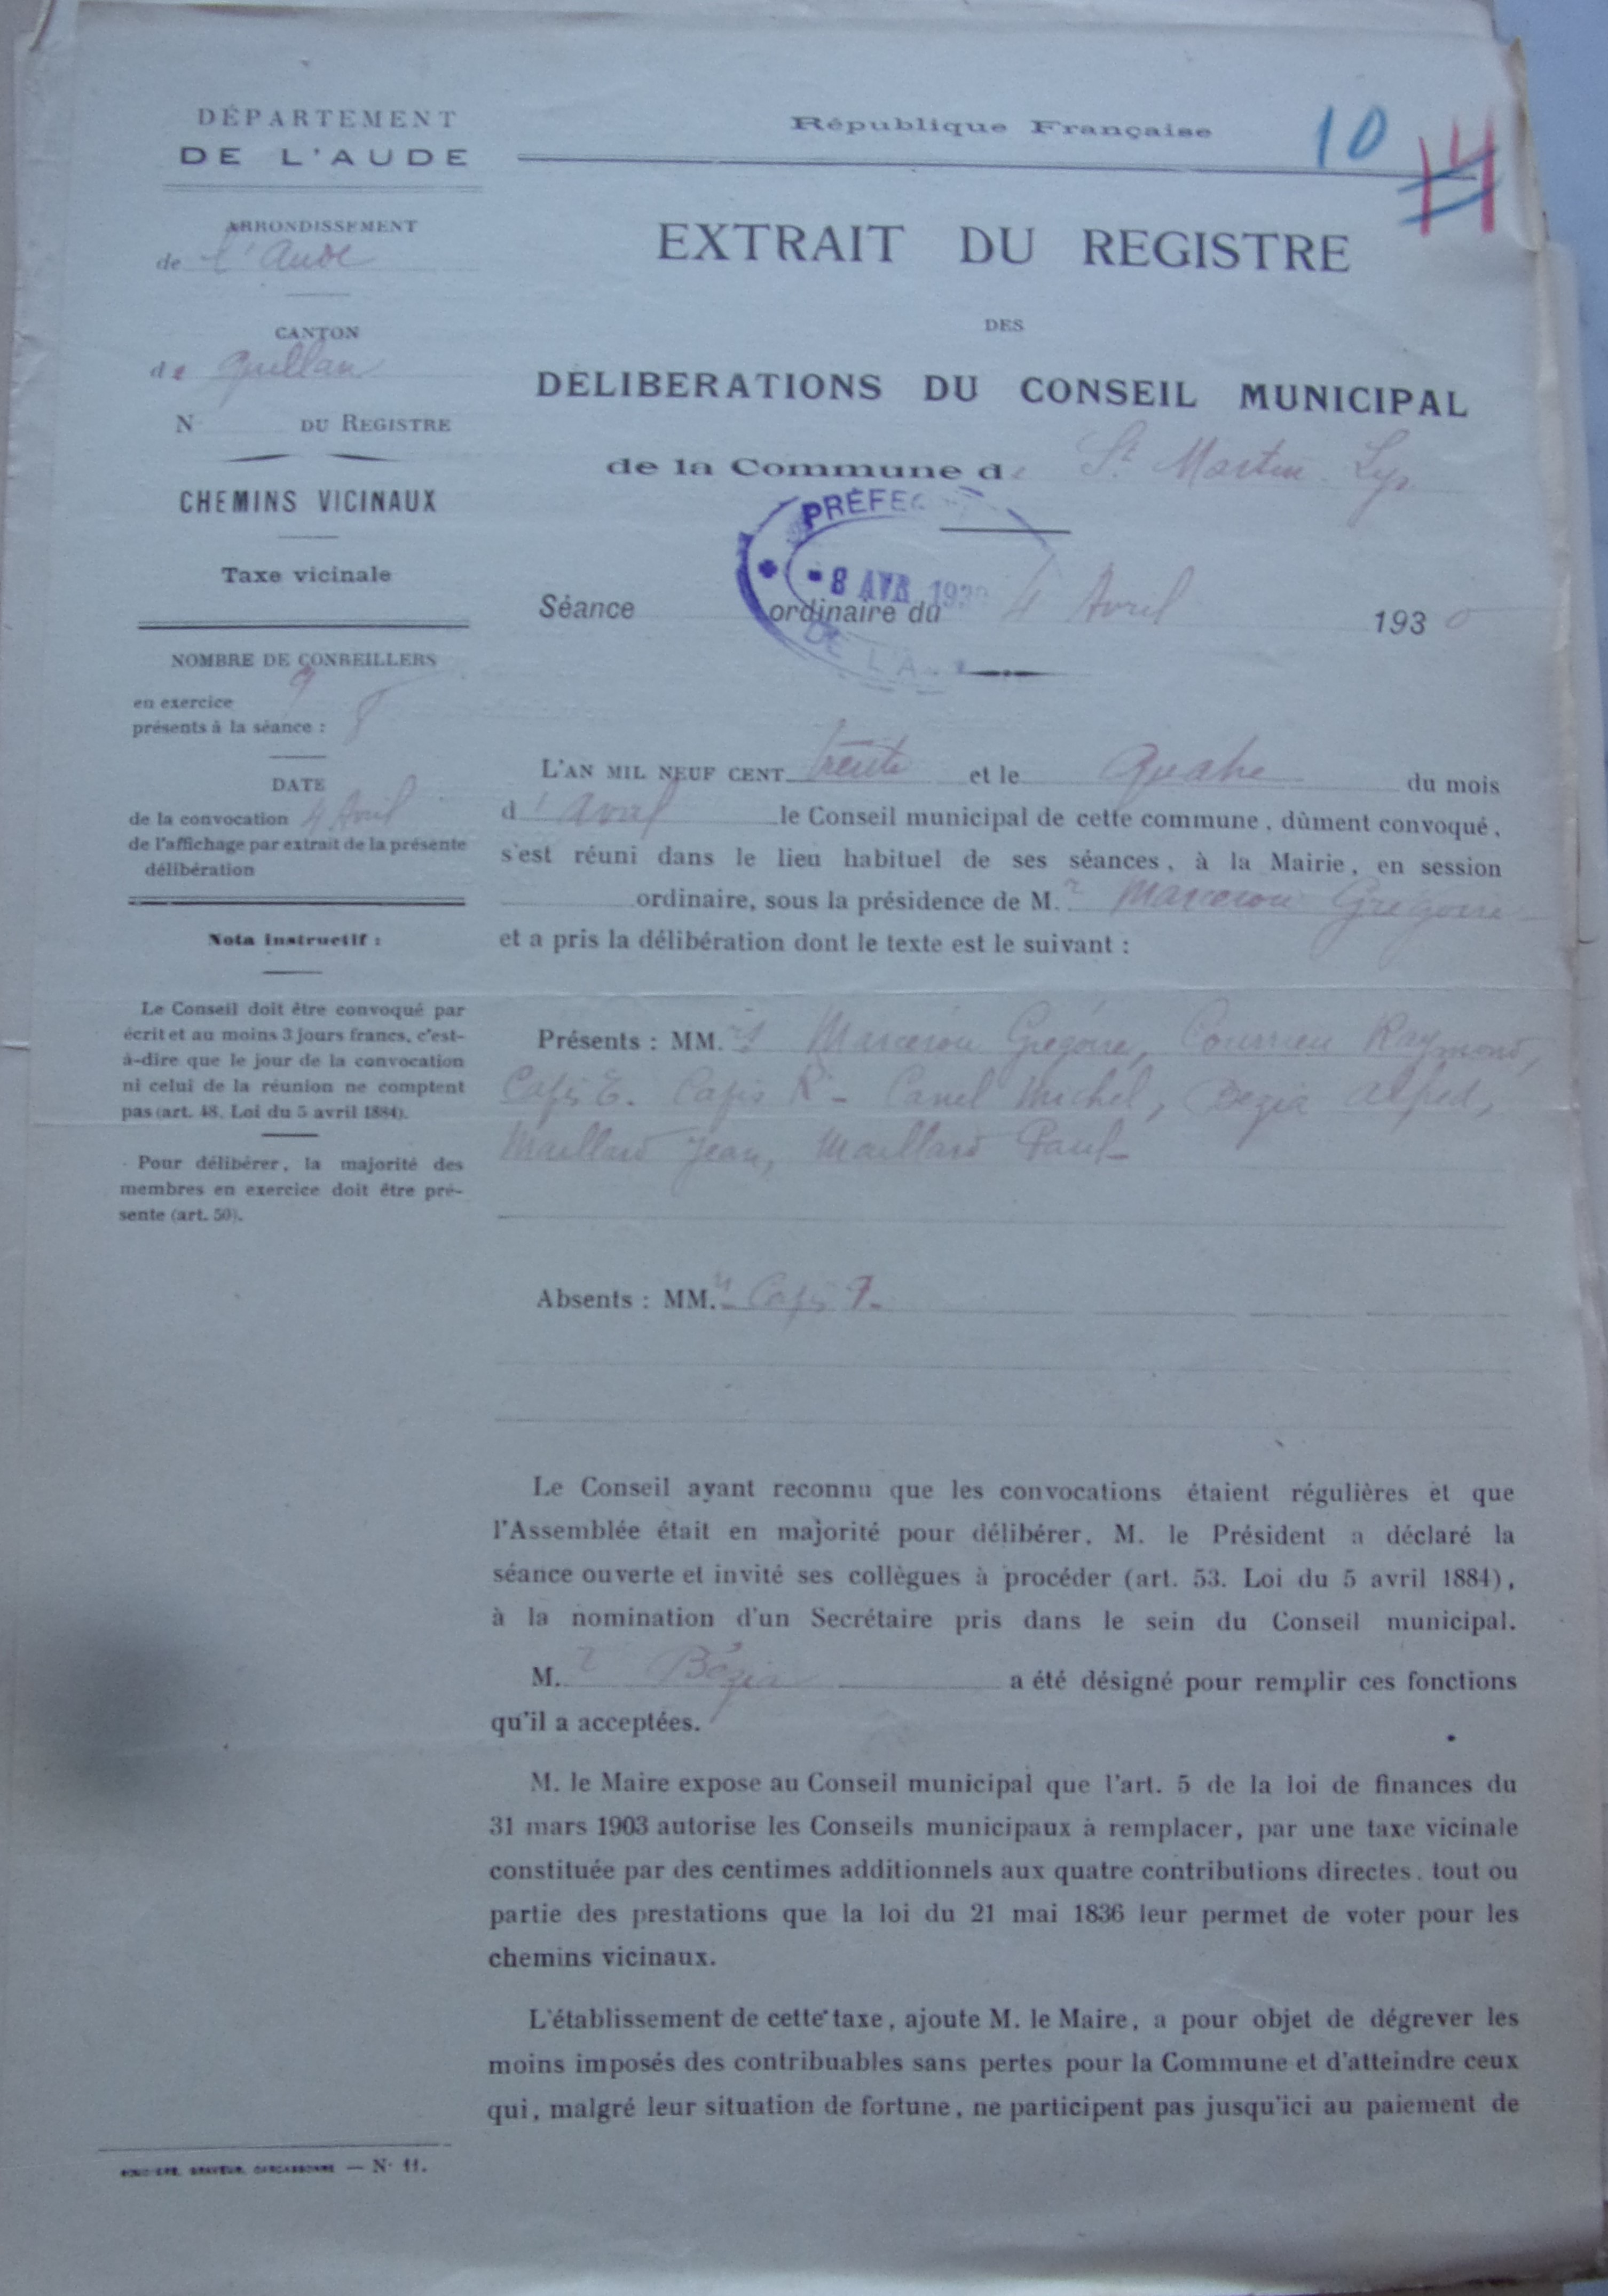 DÉPARTEMENT
DE L'AUDE
ARRONDISSEMENT
de l'Aude
CANTON
de Quillan
N DU REGISTRE
CHEMINS VICINAUX
Taxe vicinale
NOMBRE DE CONSEILLERS
9
en exercice
présents à la séance : 8
DATE
de la convocation 4 Avril
de l'affichage par extrait de la présente
délibération
Nota instructif :
Le Conseil doit être convoqué par
écrit et au moins 3 jours francs, c'est-
à-dire que le jour de la convocation
ni celui de la réunion ne comptent
pas (art. 48. Loi du 5 avril 1884).
Pour délibérer, la majorité des
membres en exercice doit être pré-
sente (art. 50).
GRAVEUR, CARCASSONNE — N° 11.
République Française
10
EXTRAIT DU REGISTRE
DES
DÉLIBÉRATIONS DU CONSEIL MUNICIPAL
de la Commune de St Martin Lys
PRÉFEC
8 AVR 193
DE L'A
Séance ordinaire du 4 Avril 1930
L'AN MIL NEUF CENT trente et le Quatre du mois
d'Avril le Conseil municipal de cette commune, dûment convoqué,
s'est réuni dans le lieu habituel de ses séances, à la Mairie, en session
ordinaire, sous la présidence de M.r Marcerou Grégoire
et a pris la délibération dont le texte est le suivant :
Présents : MM.rs Marcerou Grégoire, Raymond,
E. R - Canel Michel, Bezia Alfred,
Maillard Jean, Maillard Paul -
Absents : MM.
Le Conseil ayant reconnu que les convocations étaient régulières et que
l'Assemblée était en majorité pour délibérer, M. le Président a déclaré la
séance ouverte et invité ses collègues à procéder (art. 53. Loi du 5 avril 1884),
à la nomination d'un Secrétaire pris dans le sein du Conseil municipal.
M.r Bézia a été désigné pour remplir ces fonctions
qu'il a acceptées.
M. le Maire expose au Conseil municipal que l'art. 5 de la loi de finances du
31 mars 1903 autorise les Conseils municipaux à remplacer, par une taxe vicinale
constituée par des centimes additionnels aux quatre contributions directes, tout ou
partie des prestations que la loi du 21 mai 1836 leur permet de voter pour les
chemins vicinaux.
L'établissement de cette taxe, ajoute M. le Maire, a pour objet de dégrever les
moins imposés des contribuables sans pertes pour la Commune et d'atteindre ceux
qui, malgré leur situation de fortune, ne participent pas jusqu'ici au paiement de